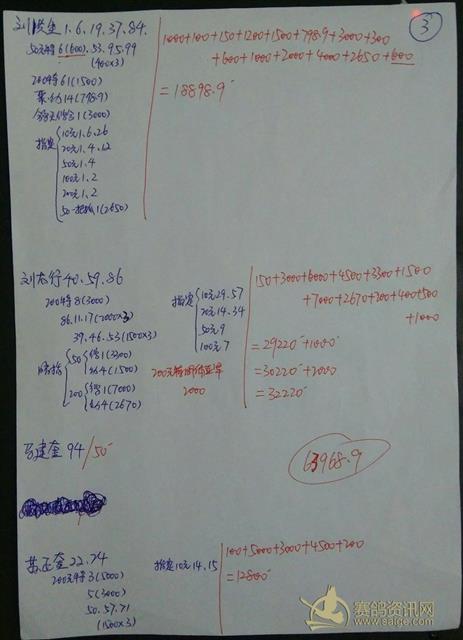 ③
1.6.19.37.84.
50元特6(600).53.95.99
(400×3)
200特61(1500)
14(798.9)
1(3000)
指定
10元1.6.26
20元1.4.12
50元1.4
100元1.2
200元1.2
1(2650)
1000+100+150+1200+1500+798.9+3000+300
+600+1000+2000+4000+2650+600
=18898.9
40.59.86
200特8(3000)
86.11.17(2000×3)
39.46.53(1500×3)
50
1(3300)
4(1500)
200
1(7000)
4(2670)
指定
10元29.57
20元14.34
50元9
100元7
2000
150+3000+6000+4500+3300+1500
+7000+2670+200+400+500
+1000
=29220+1000
=30220+2000
=32220
马建奎94/50
63968.9
苏正奎22.74
200元特3(5000)
5(3000)
50.57.71
(1500×3)
指定10元14.15
100+5000+3000+4500+200
=12800
赛鸽资讯网
www.saige.com